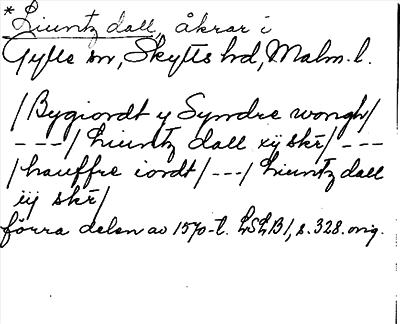 *Liuntz dall, åkrar i
Gylle sn, Skytts hd, Malm. l.
/Bygiordt y Syndre wongh/
---/Liuntz dall xij skr/---
/hauffre iordt/---/Liuntz dall
iij skr/
förra delen av 1570-t. LSLB1, s. 328. orig.